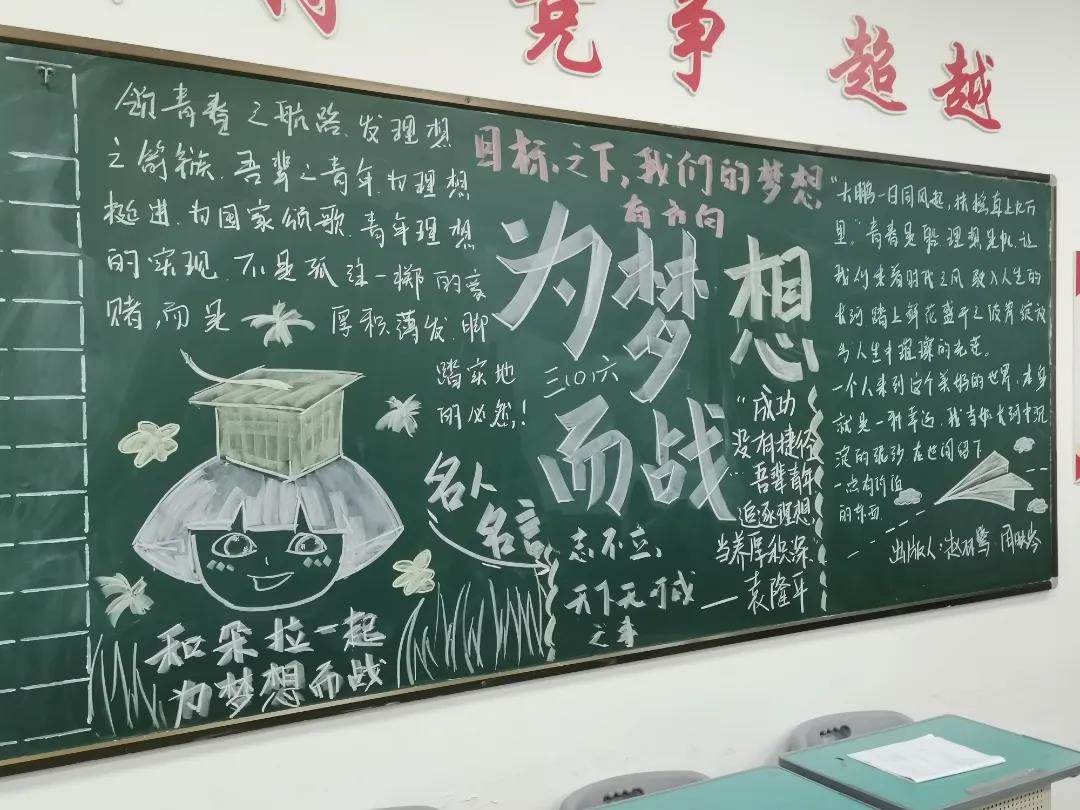 竞 争 超 越
领青春之航路,发理想
之箭镞.吾辈之青年为理想
挺进.为国家颂歌.青年理想
的实现.不是孤注一掷的豪
赌,而是 厚积薄发.脚
踏实地
的必然!
目标之下,我们的梦想
有方向
为梦想
而战
名人
名言
志不立,
天下无可成
之事
"成功
没有捷径
吾辈青年
追逐理想
当养厚积深"
——袁隆平
"大鹏一日同风起,扶摇直上九万
里."青春是船,理想是帆,让
我们乘着时代之风驶入人生的
长河踏上鲜花盛开之彼岸绽放
出人生中璀璨的光芒。
一个人来到这个美好的世界,本身
就是一种幸运.我当如大河中沉
淀的泥沙在世间留下
一点有价值
的东西.
出版人:
和朵拉一起
为梦想而战